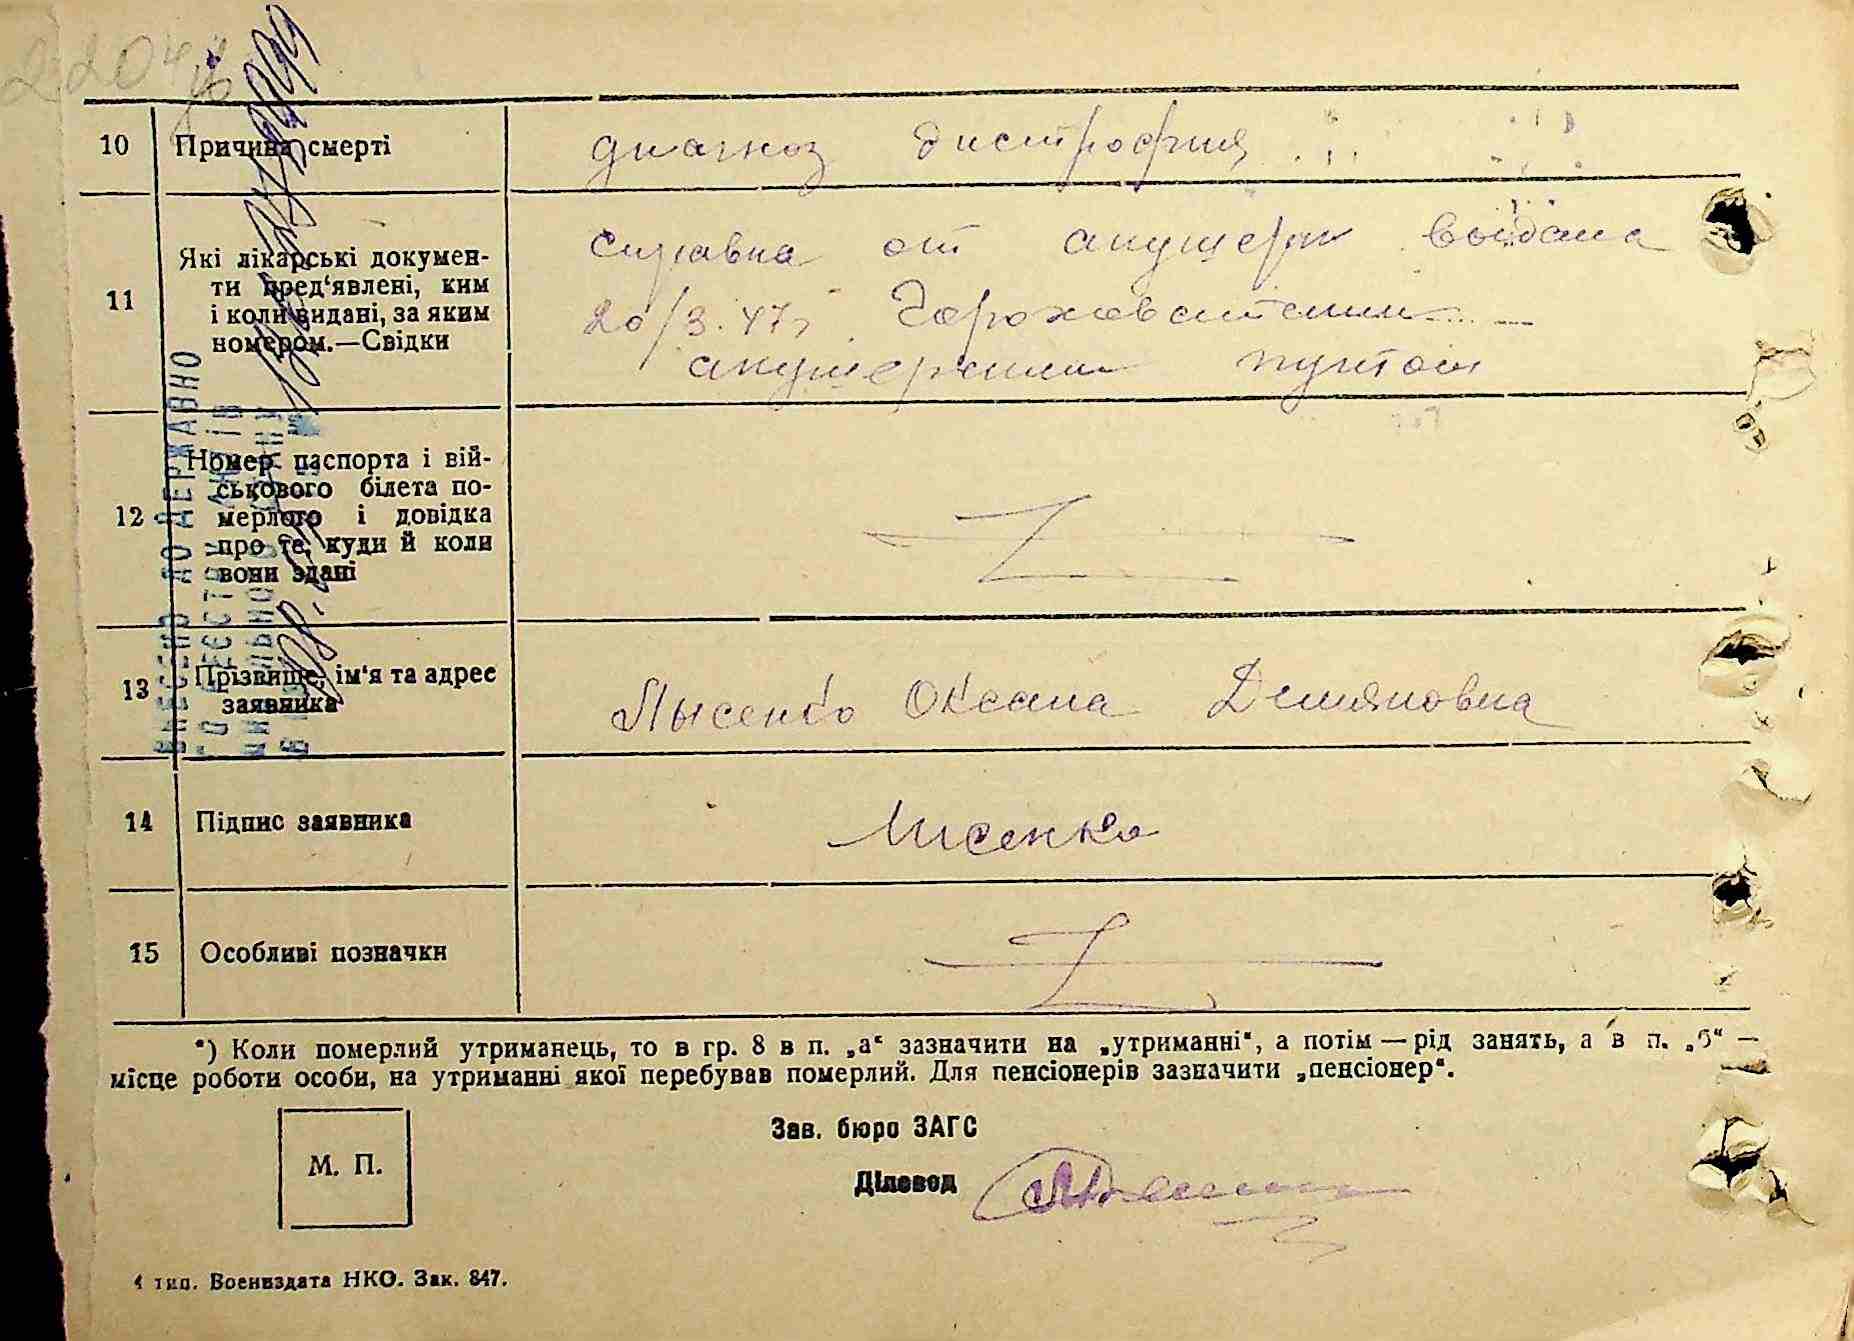 10 Причина смерті диагноз дистрофия
11 Які лікарські докумен-
ти пред'явлені, ким
і коли видані, за яким
номером.—Свідки
справка от акушерк выдана
20/3.47г
акушерским пунктом
12 Номер паспорта і вій-
ськового білета по-
мерлого і довідка
про те, куди й коли
вони здані
13 Прізвище, ім'я та адрес
заявника
Лысенко Оксана Демяновна
14 Підпис заявника Лисенко
15 Особливі позначки
ВНЕСЕНО ДО ДЕРЖАВНО
*) Коли померлий утриманець, то в гр. 8 в п. „а“ зазначити на „утриманні“, а потім — рід занять, а в п. „б“ —
місце роботи особи, на утриманні якої перебував померлий. Для пенсіонерів зазначити „пенсіонер“.
Зав. бюро ЗАГС
М. П.
Діловод
4 тип. Воениздата НКО. Зак. 847.